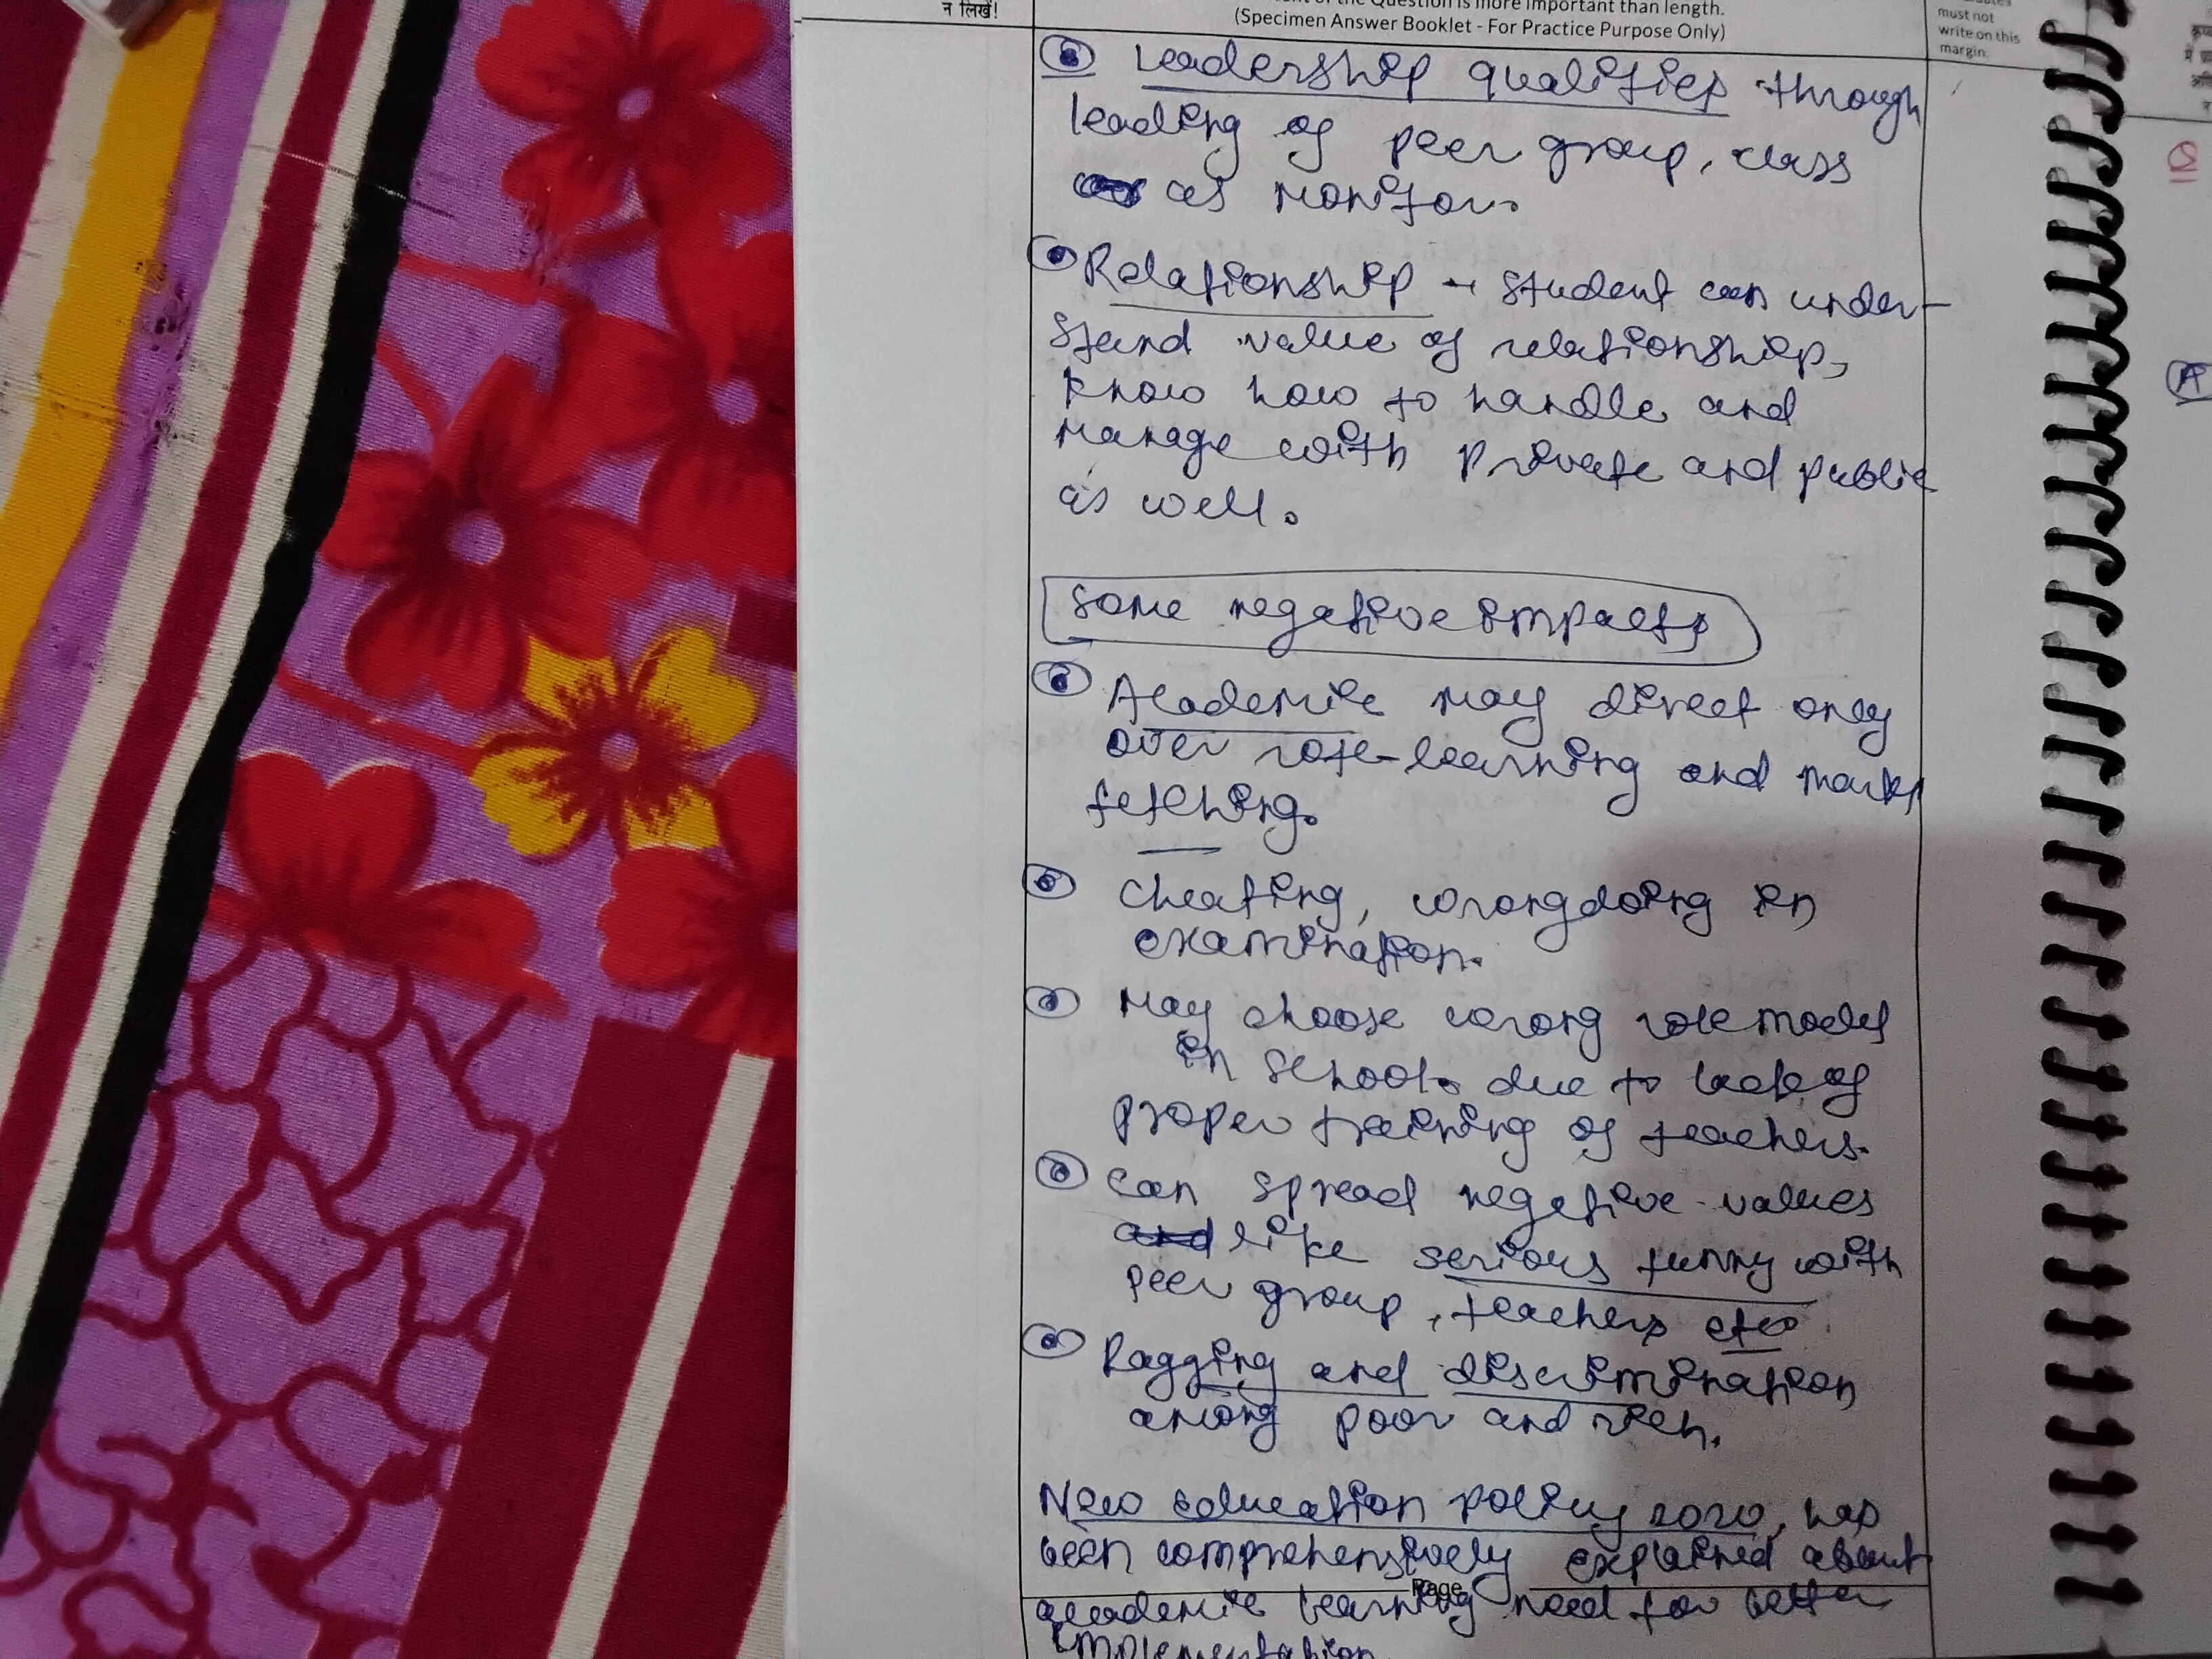 न लिखें!
of the Question is more important than length.
(Specimen Answer Booklet - For Practice Purpose Only)
must not
write on this
margin.
Leadership qualities through
leading of peer group, class
as monitor.
Relationship → student can under-
stand value of relationship,
know how to handle and
manage with private and public
as well.
Some negative impacts
Academic may direct only
over rote-learning and marks
fetching.
Cheating, wrongdoing in
examination.
May choose wrong role model
in school due to lack of
proper training of teachers.
Can spread negative values
and like serious funny with
peer group, teachers etc
Ragging and discrimination
among poor and rich.
New education policy 2020, has
been comprehensively explained about
Page
academic learning need for better
implementation
A